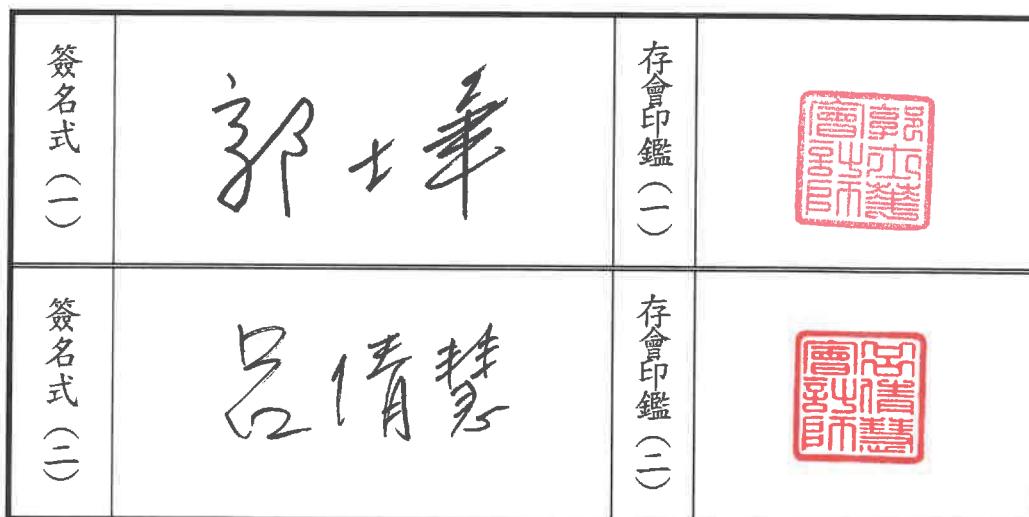 簽名式（一）
郭士華
存會印鑑（一）
郭士華
會計師
簽名式（二）
呂倩慧
存會印鑑（二）
呂倩慧
會計師